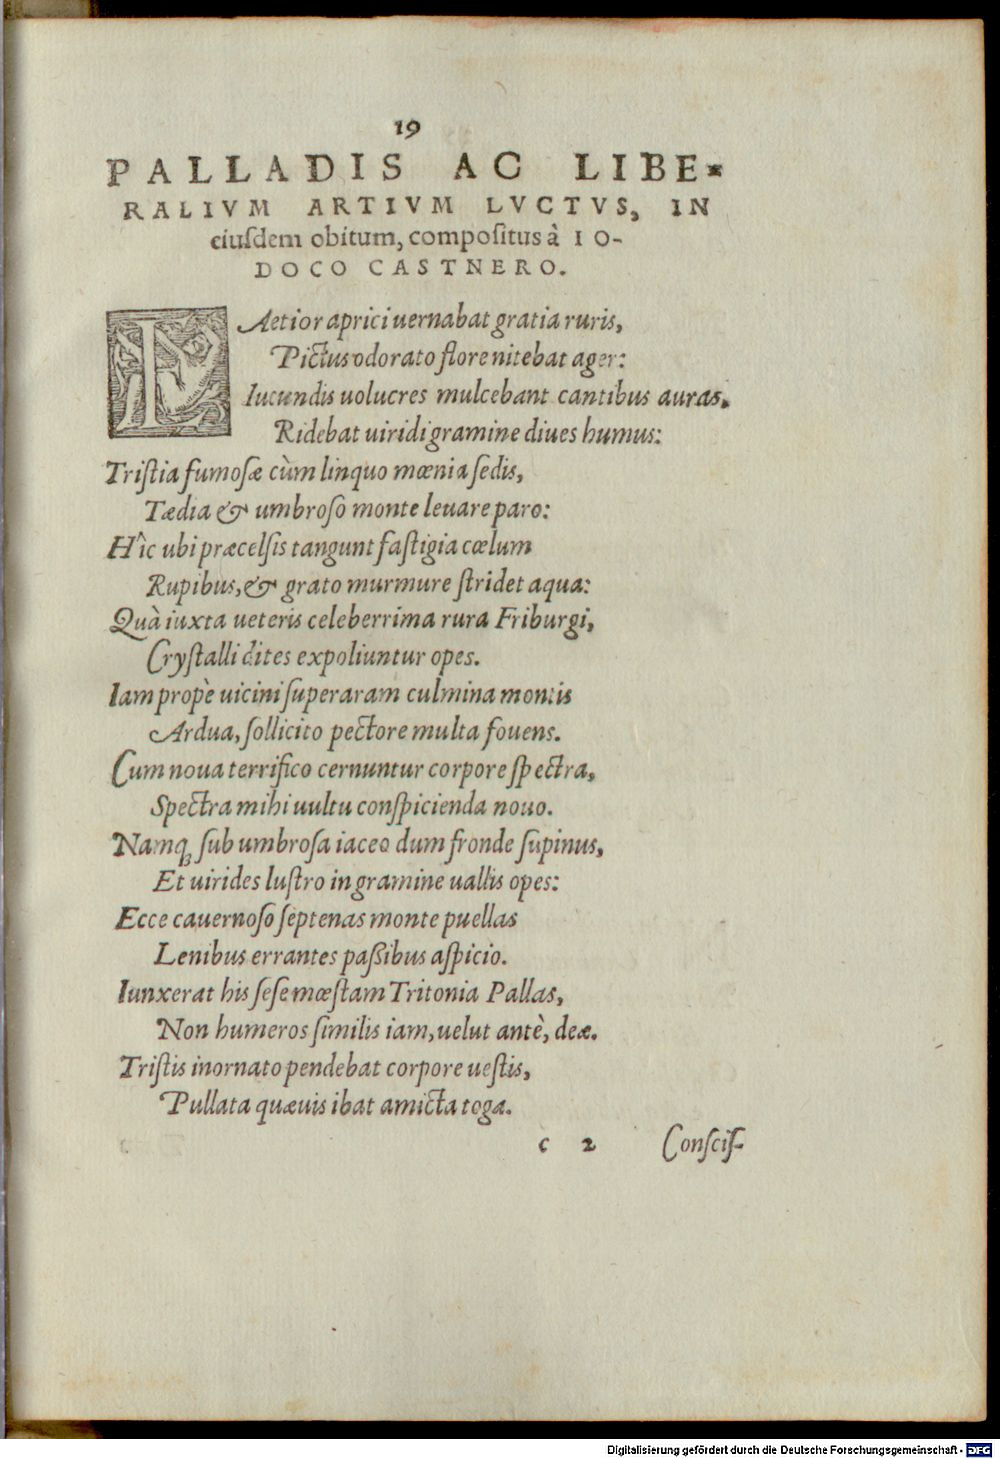 19
PALLADIS AC LIBE-
RALIVM ARTIVM LVCTVS, IN
eiuſdem obitum, compoſitus à IO-
DOCO CASTNERO.
LAetior aprici uernabat gratia ruris,
Pictus odorato flore nitebat ager:
Iucundis uolucres mulcebant cantibus auras.
Ridebat uiridi gramine diues humus:
Triſtia fumoſæ cùm linquo mœnia ſedis,
Tædia & umbroſo monte leuare paro:
Hîc ubi præcelſis tangunt faſtigia cœlum
Rupibus, & grato murmure ſtridet aqua:
Quà iuxta ueteris celeberrima rura Friburgi,
Cryſtalli dites expoliuntur opes.
Iam propè uicini ſuperaram culmina montis
Ardua, ſollicito pectore multa fouens.
Cum noua terrifico cernuntur corpore ſpectra,
Spectra mihi uultu conſpicienda nouo.
Namq́; ſub umbroſa iaceo dum fronde ſupinus,
Et uirides luſtro in gramine uallis opes:
Ecce cauernoſo ſeptenas monte puellas
Lenibus errantes paßibus aſpicio.
Iunxerat his ſeſe mœſtam Tritonia Pallas,
Non humeros ſimilis iam, uelut antè, deæ.
Triſtis inornato pendebat corpore ueſtis,
Pullata quæuis ibat amicta toga.
c 2 Conſciſ-
Digitalisierung gefördert durch die Deutsche Forschungsgemeinschaft - DFG